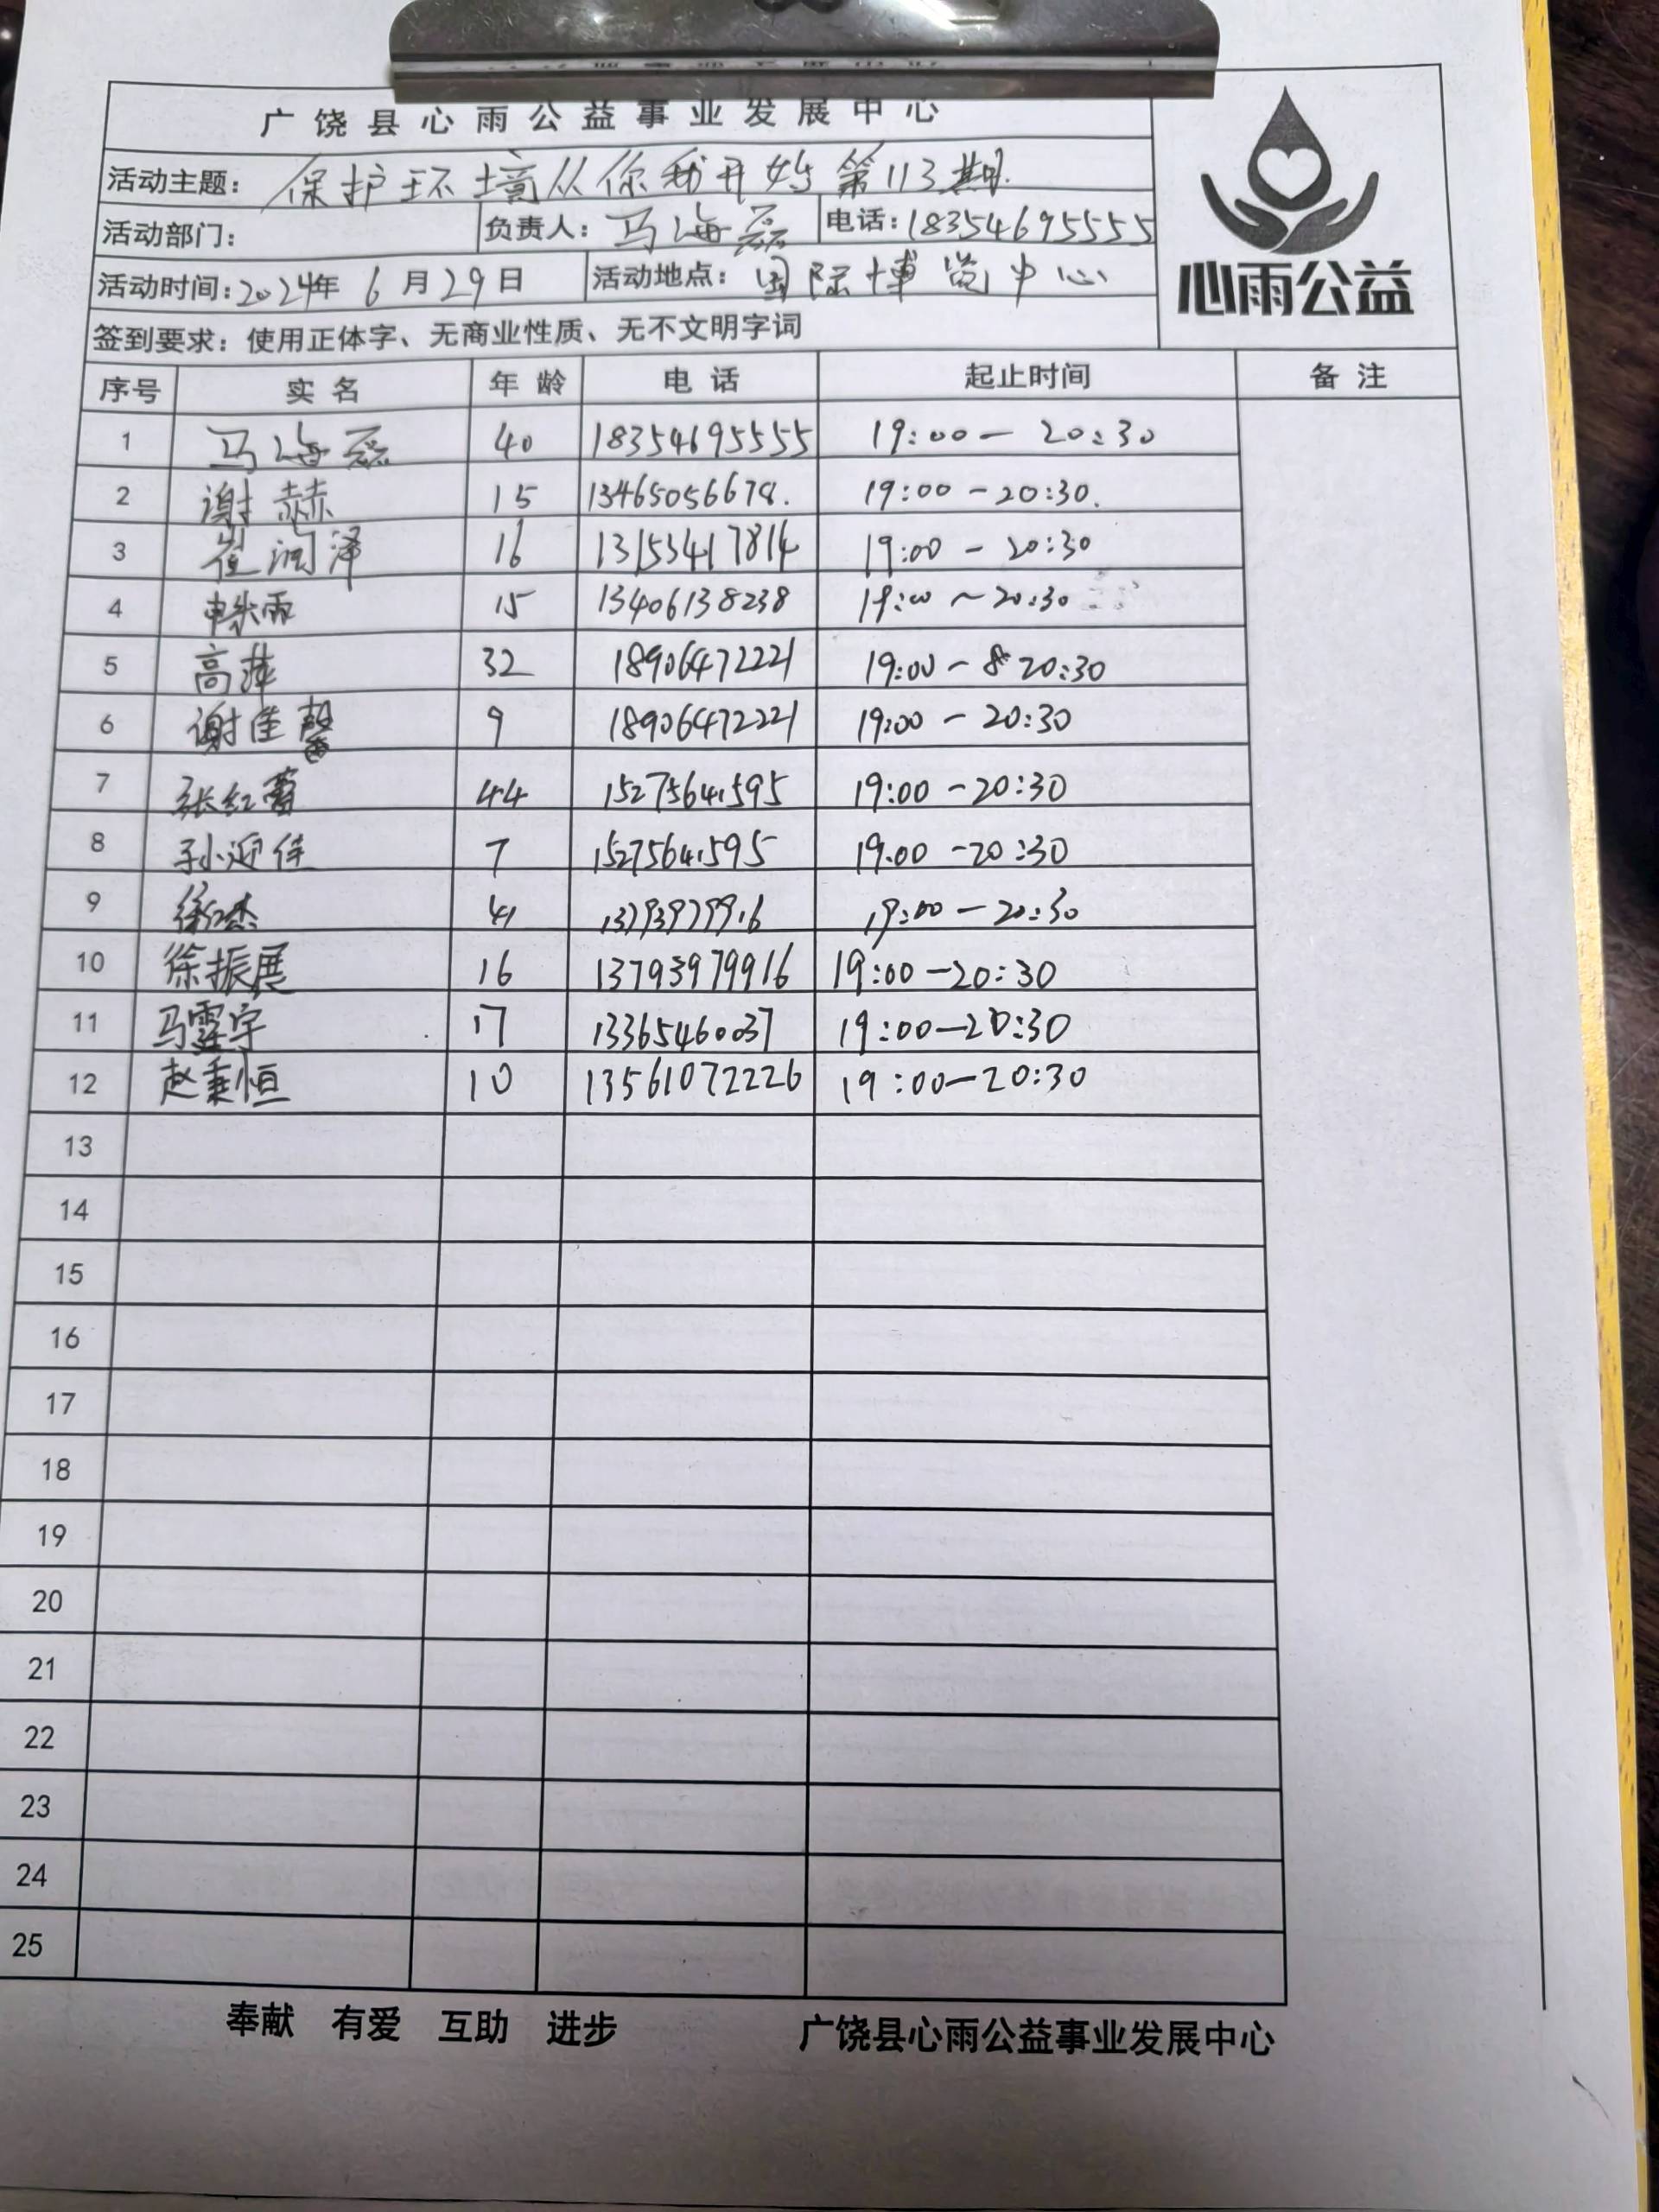 广饶县心雨公益事业发展中心
活动主题：保护环境从你我开始第113期.
活动部门： 负责人：马海磊 电话：18354695555
活动时间：2024年6月29日 活动地点：国际博览中心
心雨公益
签到要求：使用正体字、无商业性质、无不文明字词
序号 实名 年龄 电话 起止时间 备注
1 马海磊 40 18354695555 19:00—20:30
2 谢赫 15 13465056678. 19:00-20:30.
3 崔润泽 16 13153417814 19:00-20:30
4 15 13406138238 19:00~20:30
5 高萍 32 18906472221 19:00-8 20:30
6 谢佳馨 9 18906472221 19:00-20:30
7 张红蕾 44 15275641595 19:00-20:30
8 孙迎佳 7 15275641595 19:00-20:30
9 徐红杰 41 13793979916 19:00—20:30
10 徐振展 16 13793979916 19:00—20:30
11 马霆宇 17 13365460037 19:00—20:30
12 赵秉恒 10 13561072226 19:00—20:30
13
14
15
16
17
18
19
20
21
22
23
24
25
奉献 有爱 互助 进步 广饶县心雨公益事业发展中心